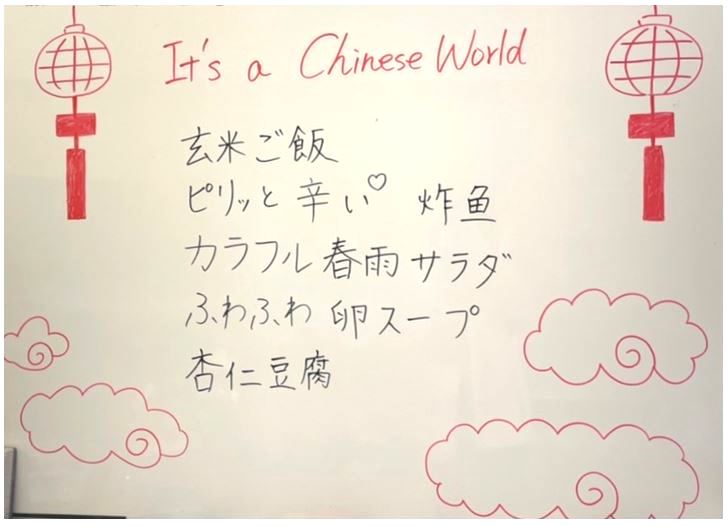 It's a Chinese World
玄米ご飯
ピリッと辛い♡ 炸鱼
カラフル春雨サラダ
ふわふわ卵スープ
杏仁豆腐